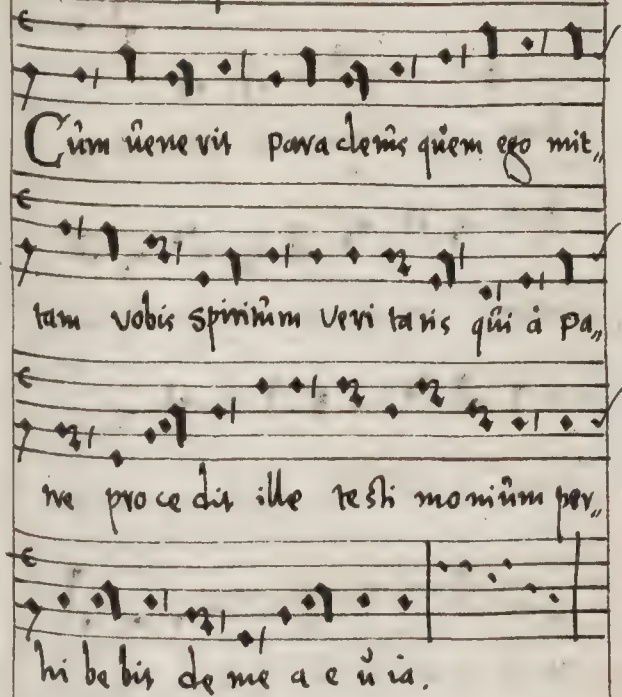 Cûm ûene rit para cletûs qûem ego mit„
tam vobis spiritûm veri tatis qûi à pa„
tre pro ce dit ille testi moniûm per„
hi be bit de me a e û ia.